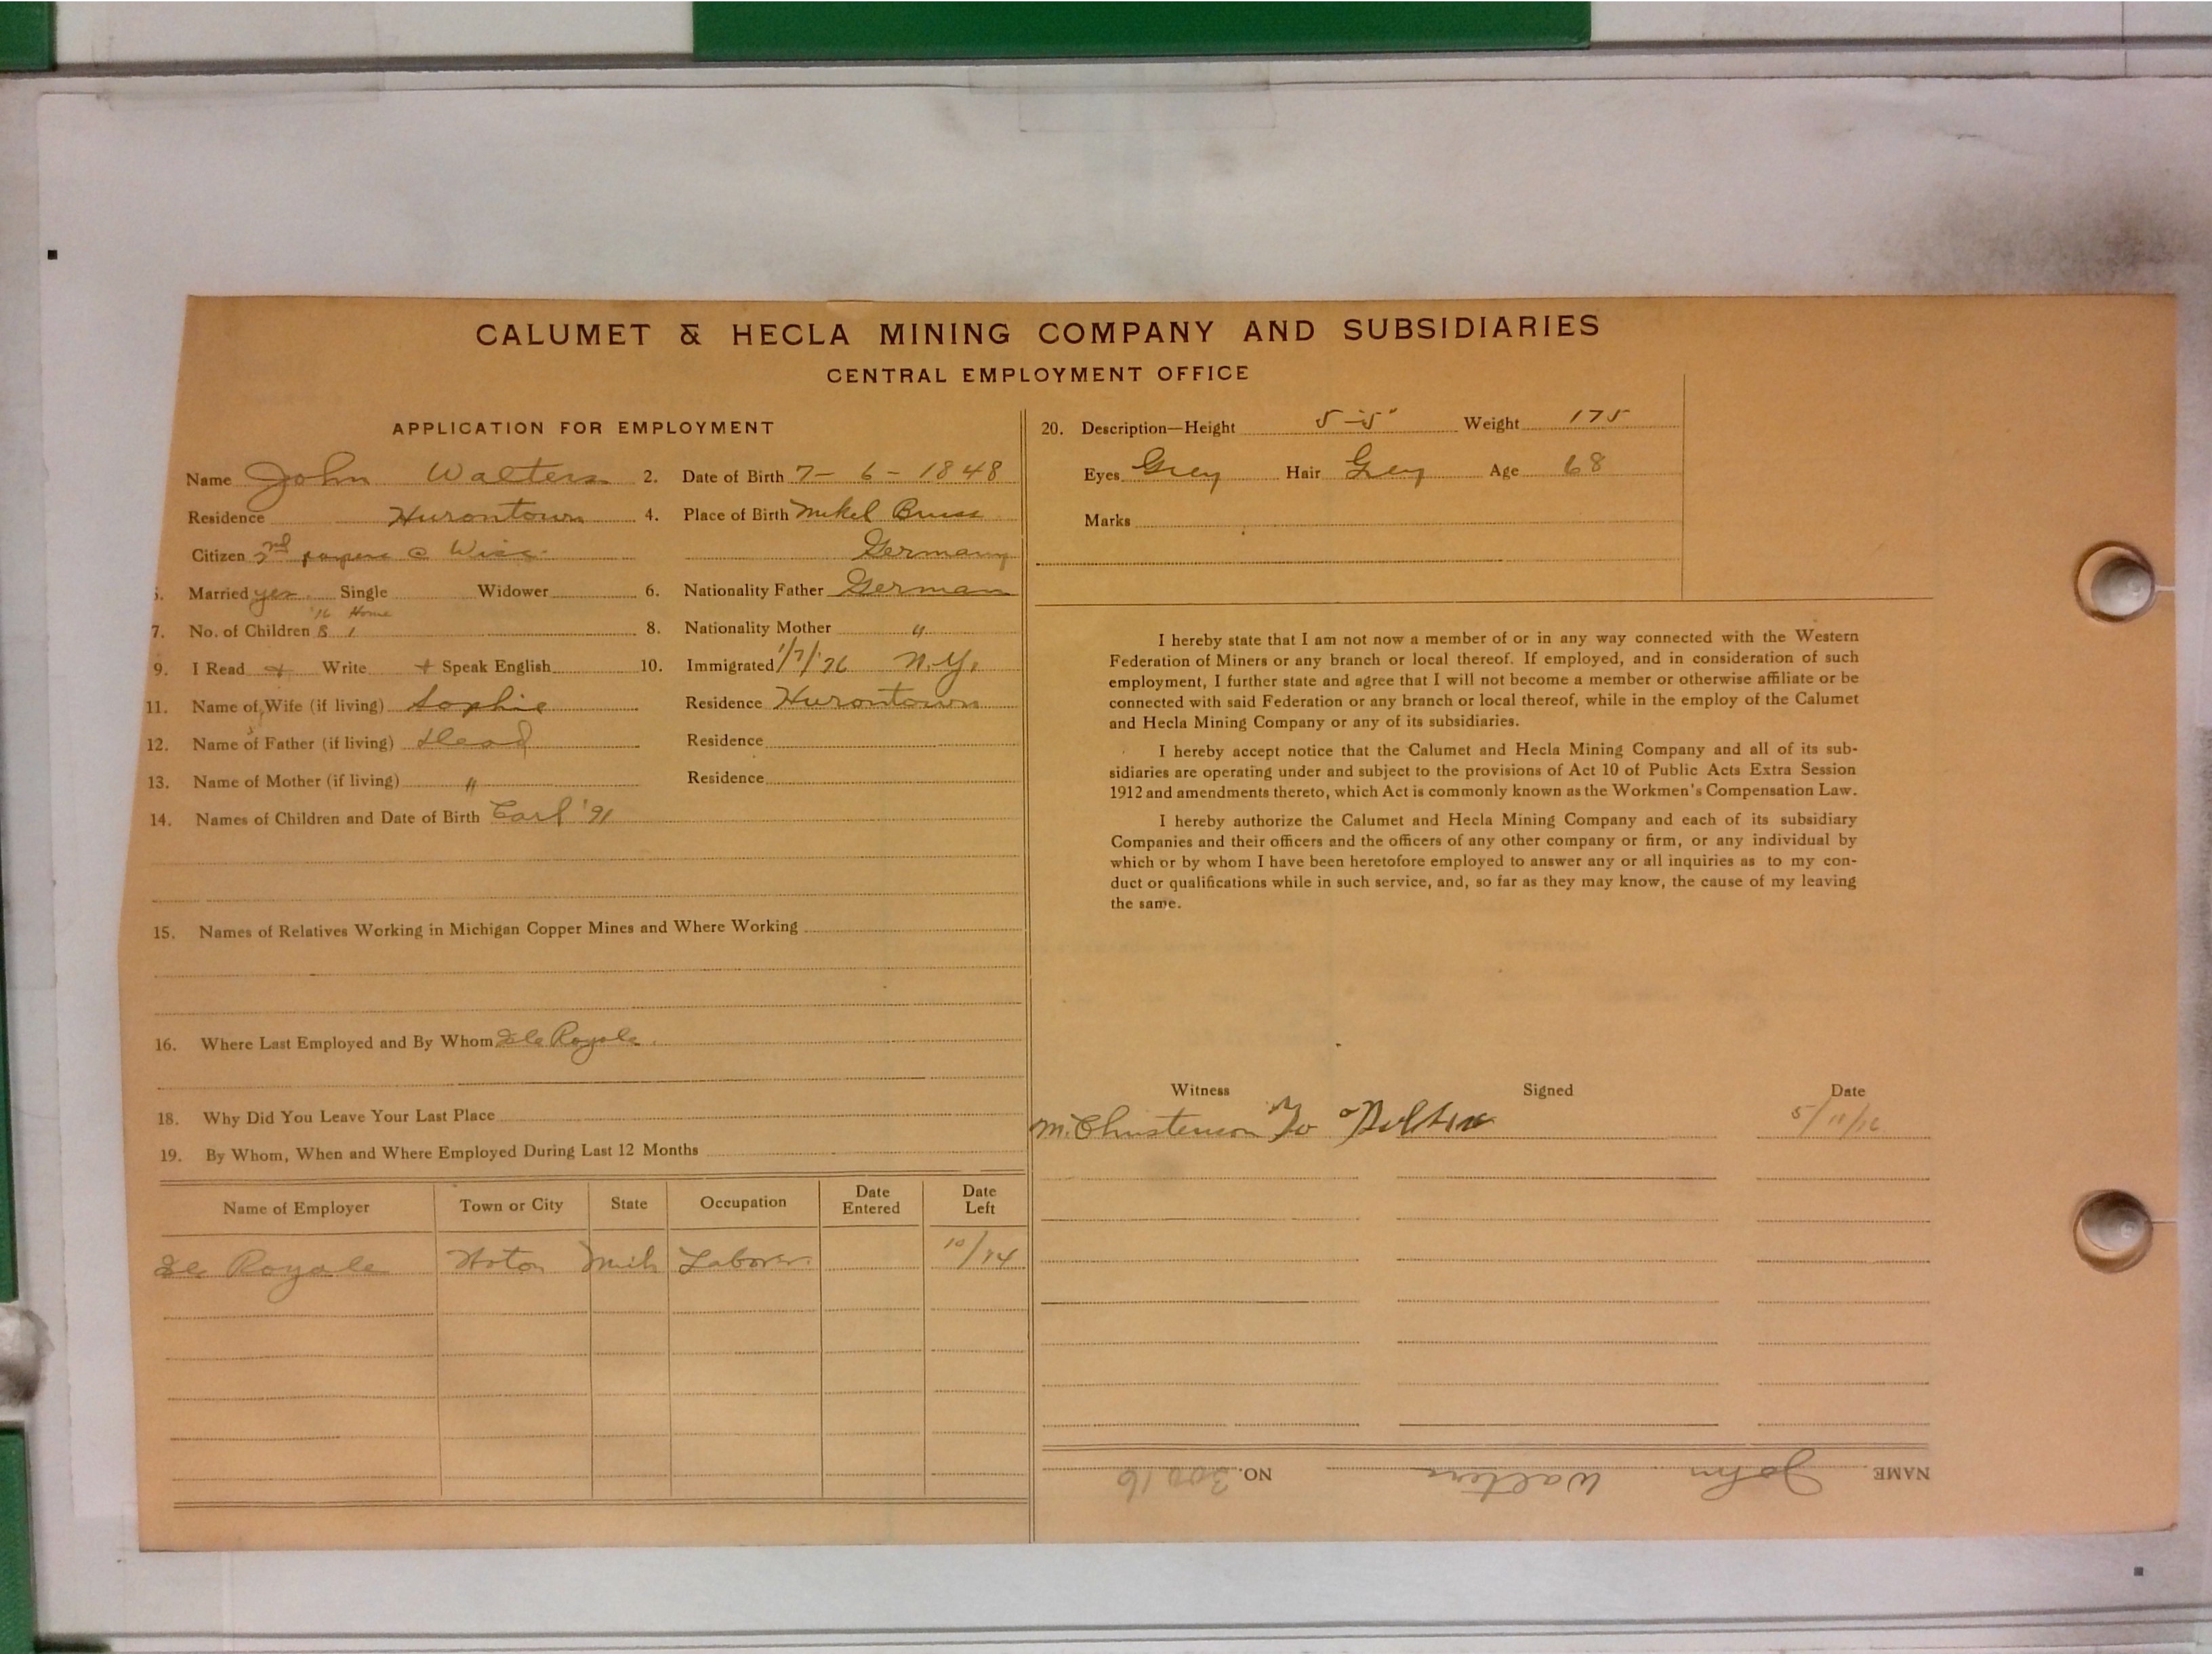 CALUMET & HECLA MINING COMPANY AND SUBSIDIARIES
CENTRAL EMPLOYMENT OFFICE
APPLICATION FOR EMPLOYMENT
Name John Walters 2. Date of Birth 7-6-1848
Residence Hurontown 4. Place of Birth
Citizen 2nd papers @ Wisc. Germany
5. Married yes Single Widower 6. Nationality Father German
'16 Home
7. No. of Children 8 1 8. Nationality Mother "
9. I Read + Write + Speak English 10. Immigrated 1/7/'76 N.Y.
11. Name of Wife (if living) Sophie Residence Hurontown
12. Name of Father (if living) Dead Residence
13. Name of Mother (if living) " Residence
14. Names of Children and Date of Birth Carl '91
15. Names of Relatives Working in Michigan Copper Mines and Where Working
16. Where Last Employed and By Whom Isle Royale.
18. Why Did You Leave Your Last Place
19. By Whom, When and Where Employed During Last 12 Months
Name of Employer Town or City State Occupation Date Entered Date Left
Isle Royale Hoton Mich Laborer. 10/14
20. Description—Height 5-5" Weight 175
Eyes Grey Hair Grey Age 68
Marks
I hereby state that I am not now a member of or in any way connected with the Western
Federation of Miners or any branch or local thereof. If employed, and in consideration of such
employment, I further state and agree that I will not become a member or otherwise affiliate or be
connected with said Federation or any branch or local thereof, while in the employ of the Calumet
and Hecla Mining Company or any of its subsidiaries.
I hereby accept notice that the Calumet and Hecla Mining Company and all of its sub-
sidiaries are operating under and subject to the provisions of Act 10 of Public Acts Extra Session
1912 and amendments thereto, which Act is commonly known as the Workmen's Compensation Law.
I hereby authorize the Calumet and Hecla Mining Company and each of its subsidiary
Companies and their officers and the officers of any other company or firm, or any individual by
which or by whom I have been heretofore employed to answer any or all inquiries as to my con-
duct or qualifications while in such service, and, so far as they may know, the cause of my leaving
the same.
Witness Signed Date
M. Christenson 5/11/16
NAME John Walters NO. 30016